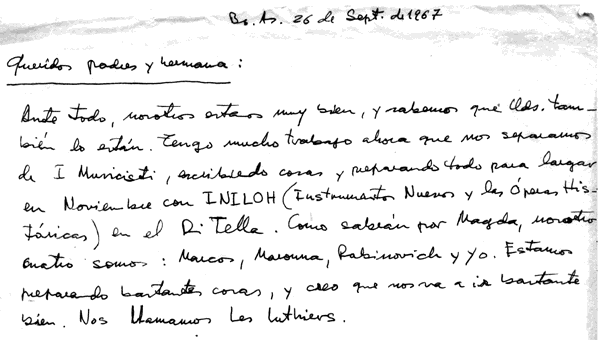 Bs. As. 26 de Sept. de 1967
Queridos padres y hermana:
Ante todo, nosotros estamos muy bien, y sabemos que Uds. tam-
bién lo están. Tengo mucho trabajo ahora que nos separamos
de I Musicisti, escribiendo cosas y preparando todo para largar
en Noviembre con INILOH (Instrumentos Nuevos y las Óperas His-
tóricas) en el Di Tella. Como sabrán por Magda, nosotros
cuatro somos: Marcos, Maronna, Rabinovich y yo. Estamos
preparando bastantes cosas, y creo que nos va a ir bastante
bien. Nos llamamos Les Luthiers.